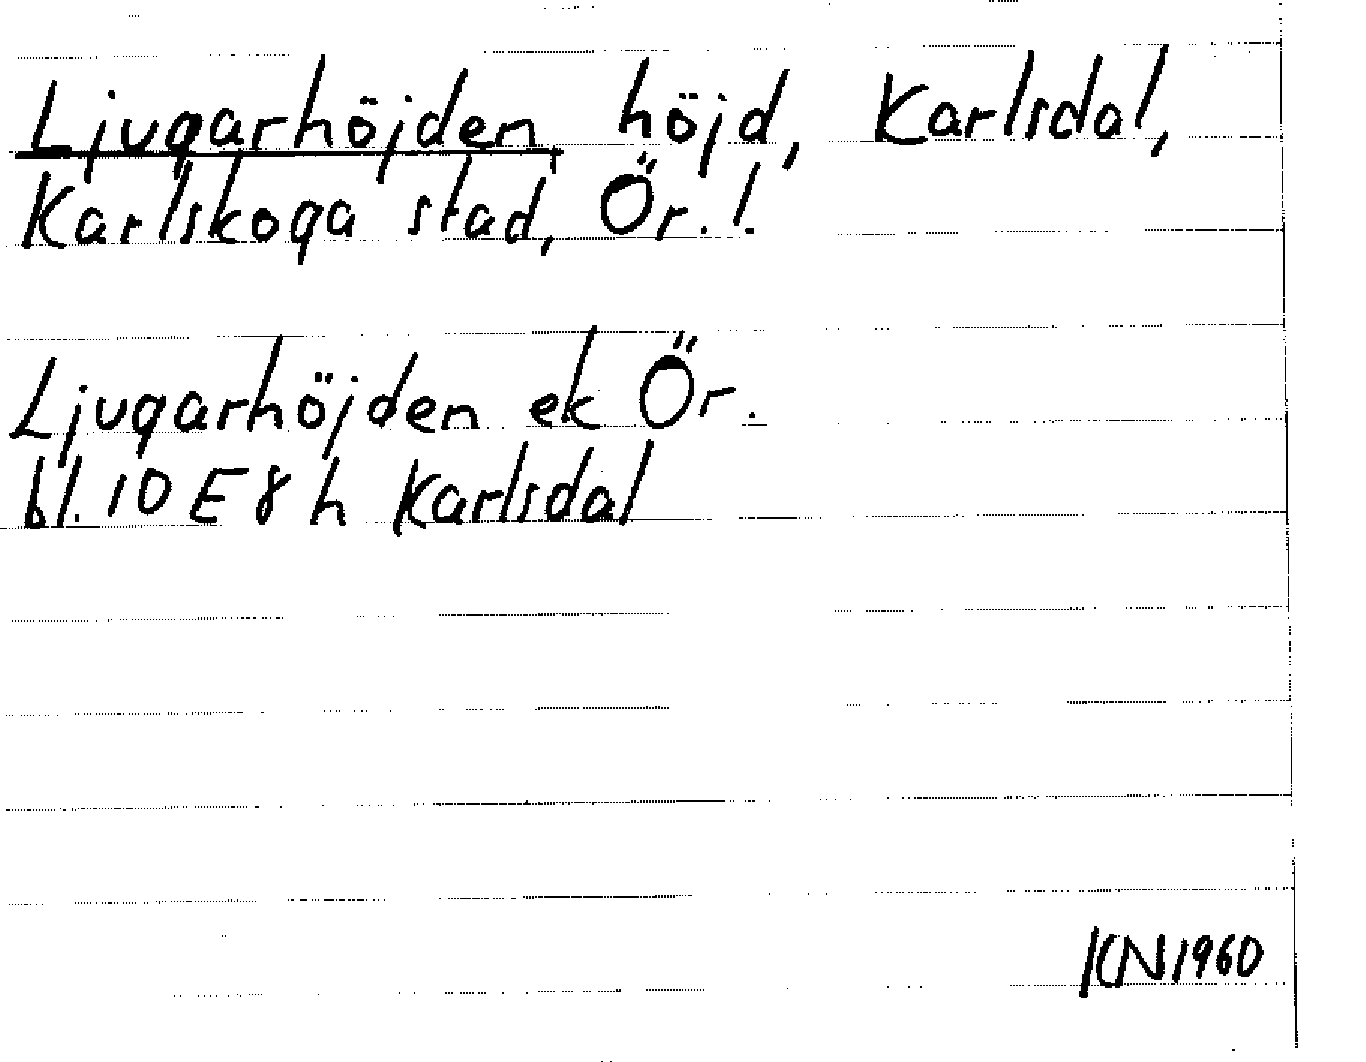 Ljugarhöjden, höjd, Karlsdal,
Karlskoga stad, Ör. l.
Ljugarhöjden ek Ör.
bl. 10 E 8 h Karlsdal
KN 1960